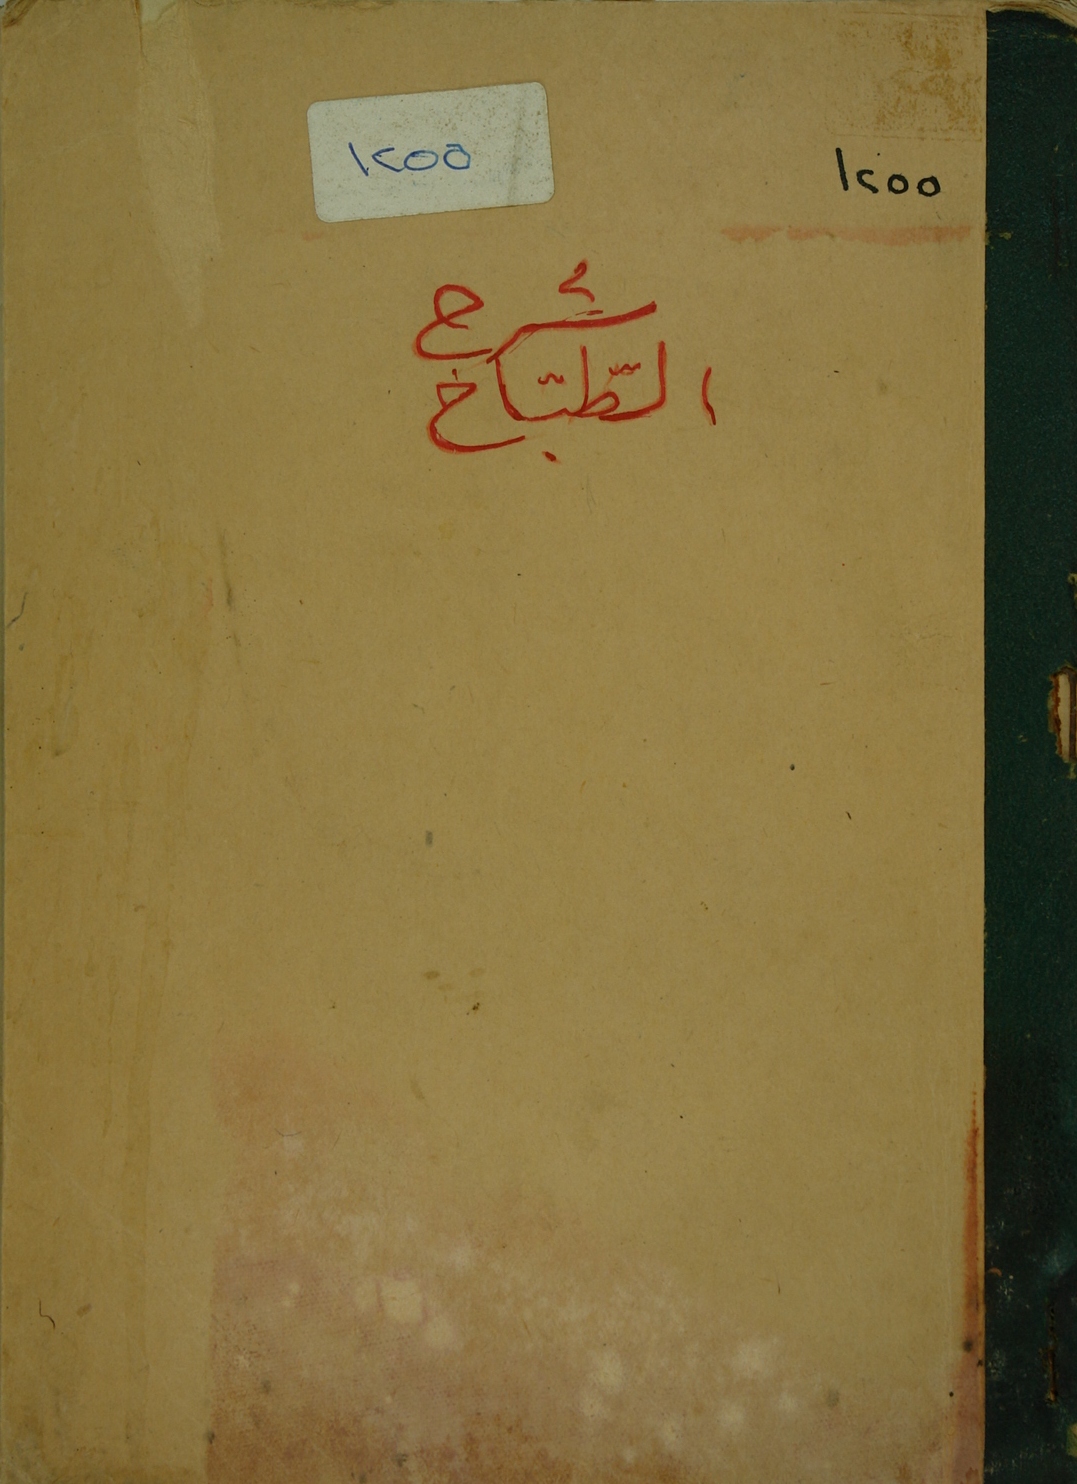 ١٢٥٥
١٢٥٥
شرح
الطّبّاخ